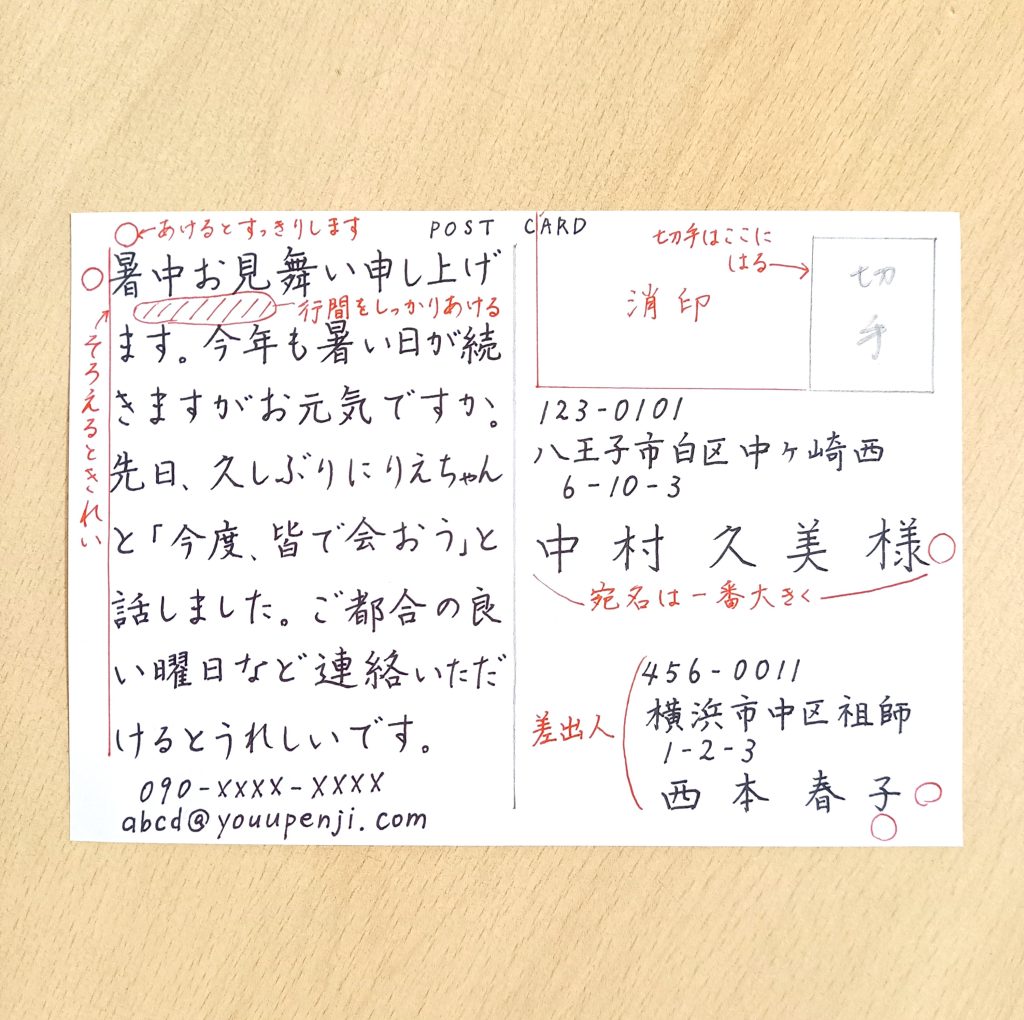 あけるとすっきりします
POST CARD
暑中お見舞い申し上げ
行間をしっかりあける
ます。今年も暑い日が続
きますがお元気ですか。
先日、久しぶりにりえちゃん
と「今度、皆で会おう」と
話しました。ご都合の良
い曜日など連絡いただ
けるとうれしいです。
090-XXXX-XXXX
abcd@youupenji.com
そろえるときれい
切手はここに
はる
切
手
消印
123-0101
八王子市白区中ヶ崎西
6-10-3
中村久美様
宛名は一番大きく
差出人
456-0011
横浜市中区祖師
1-2-3
西本春子